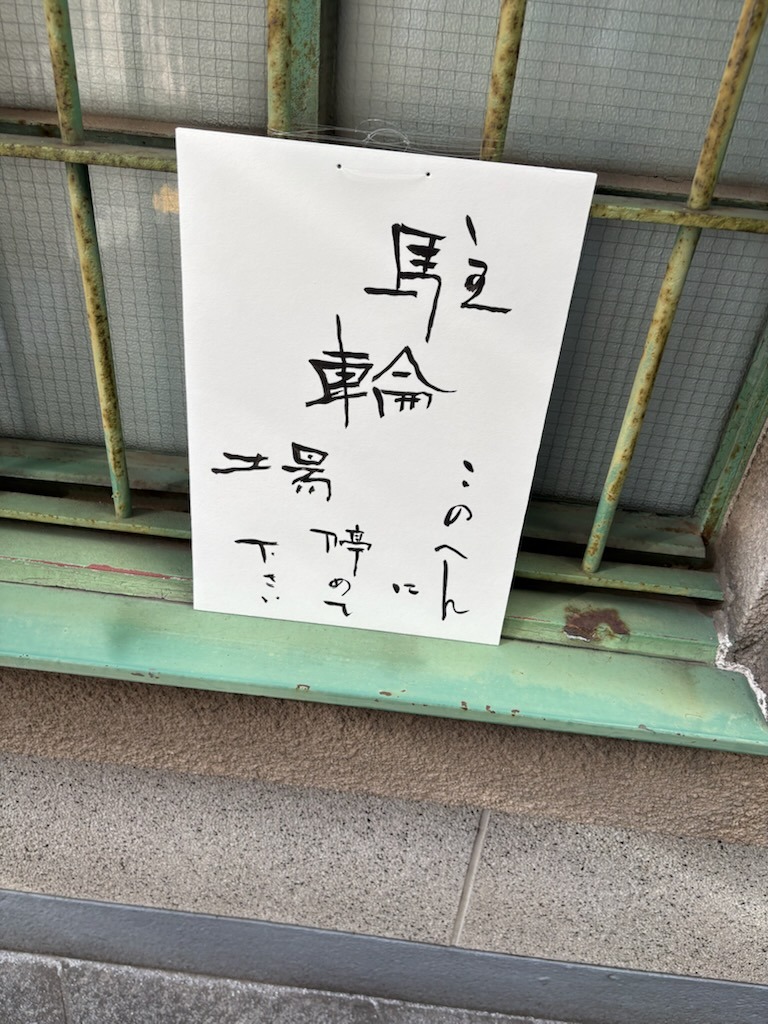 駐
輪
場
このへん
に
停めて
下さい